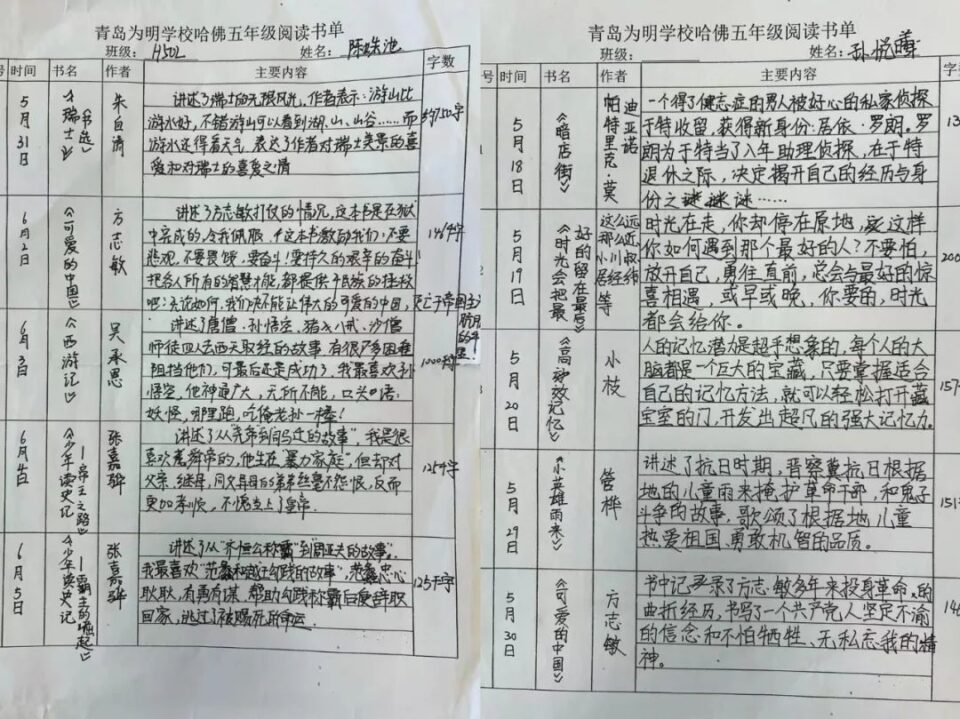 青岛为明学校哈佛五年级阅读书单
班级：H502 姓名：陈
号 时间 书名 作者 主要内容 字数
5月31日
《瑞士》
书选
朱自清
讲述了瑞士的无限风光，作者表示：游山比
游水好，不错游山可以看到湖、山、山谷……而
游水还得看天气，表达了作者对瑞士美景的喜
爱和对瑞士的喜爱之情
6月2日
《可爱的中国》
方志敏
讲述了方志敏打仗的情况，这本书是在狱
中完成的，令我佩服，这本书教励我们：不要
悲观，不要畏馁，要奋斗！要持久的艰辛的奋斗！
把各人所有的智慧才能，都提供于民族的拯救
吧！无论如何，我们决不能让伟大的可爱的中国，灭亡于帝国主义
肮脏的手里！
6月3日
《西游记》
吴承恩
讲述了唐僧、孙悟空、猪八戒、沙僧
师徒四人去西天取经的故事，有很多困难
阻挡他们，可最后还是成功了，我最喜欢孙
悟空，他神通广大，无所不能，口头语：
妖怪，哪里跑，吃俺老孙一棒！
6月4日
《少年读史记
—帝王之路》
张嘉骅
讲述了从“黄帝到司马迁的故事”，我是很
喜欢舜帝的，他生在“暴力家庭”，但却对
父亲、继母、同父异母的弟弟丝毫不怨恨，反而
更加孝顺，不愧当上了皇帝.
1254字
6月5日
《少年读史记
—霸主的崛起》
张嘉骅
讲述了从“齐桓公称霸”到周亚夫的故事”，
我最喜欢“范蠡和越王勾践的故事”，范蠡忠心
耿耿，有勇有谋，帮助勾践称霸后便辞职
回家，逃过了被赐死的命运.
125千字
青岛为明学校哈佛五年级阅读书单
班级： 姓名：孙悦
号 时间 书名 作者 主要内容 字
5月18日
《暗店街》
帕特里克·莫
迪亚诺
一个得了健忘症的男人被好心的私家侦探
于特收留，获得新身份：居依·罗朗。罗
朗为于特当了八年助理侦探，在于特
退休之际，决定揭开自己的经历与身
份之谜……
13
5月19日
《时光会把最
好的留在最后》
这么远
那么近
小川叔
居经纬
等
时光在走，你却停在原地，这样
你如何遇到那个最好的人？不要怕，
放开自己，勇往直前，总会与最好的惊
喜相遇，或早或晚，你要的，时光
都会给你。
200
5月20日
《高效记忆》
小枝
人的记忆潜力是超乎想象的，每个人的大
脑都是一个巨大的宝藏，只要掌握适合
自己的记忆方法，就可以轻松打开藏
宝室的门，开发出超凡的强大记忆力。
157
5月29日
《小英雄雨来》
管桦
讲述了抗日时期，晋察冀抗日根据
地的儿童雨来掩护革命干部，和鬼子
斗争的故事，歌颂了根据地儿童
热爱祖国、勇敢机智的品质。
151
5月30日
《可爱的中国》
方志敏
书中记录了方志敏多年来投身革命的
曲折经历，书写了一个共产党人坚定不渝
的信念和不怕牺牲、无私忘我的精
神。